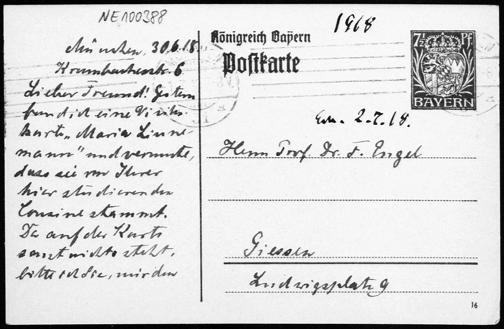 NE100388
1918
Königreich Bayern
Postkarte
7½ Pf
BAYERN
München, 30.6.18
6
Lieber Freund! Gestern
fand ich eine Visiten
karte „Maria Linne
mann" und vermute,
dass sie von Ihrer
hier studierenden
Cousine stammt.
Da auf der Karte
sonst nichts steht,
bitte ich Sie, mir den
2.7.18.
Herrn Prof. Dr. F. Engel
Giessen
Ludwigsplatz 9
16